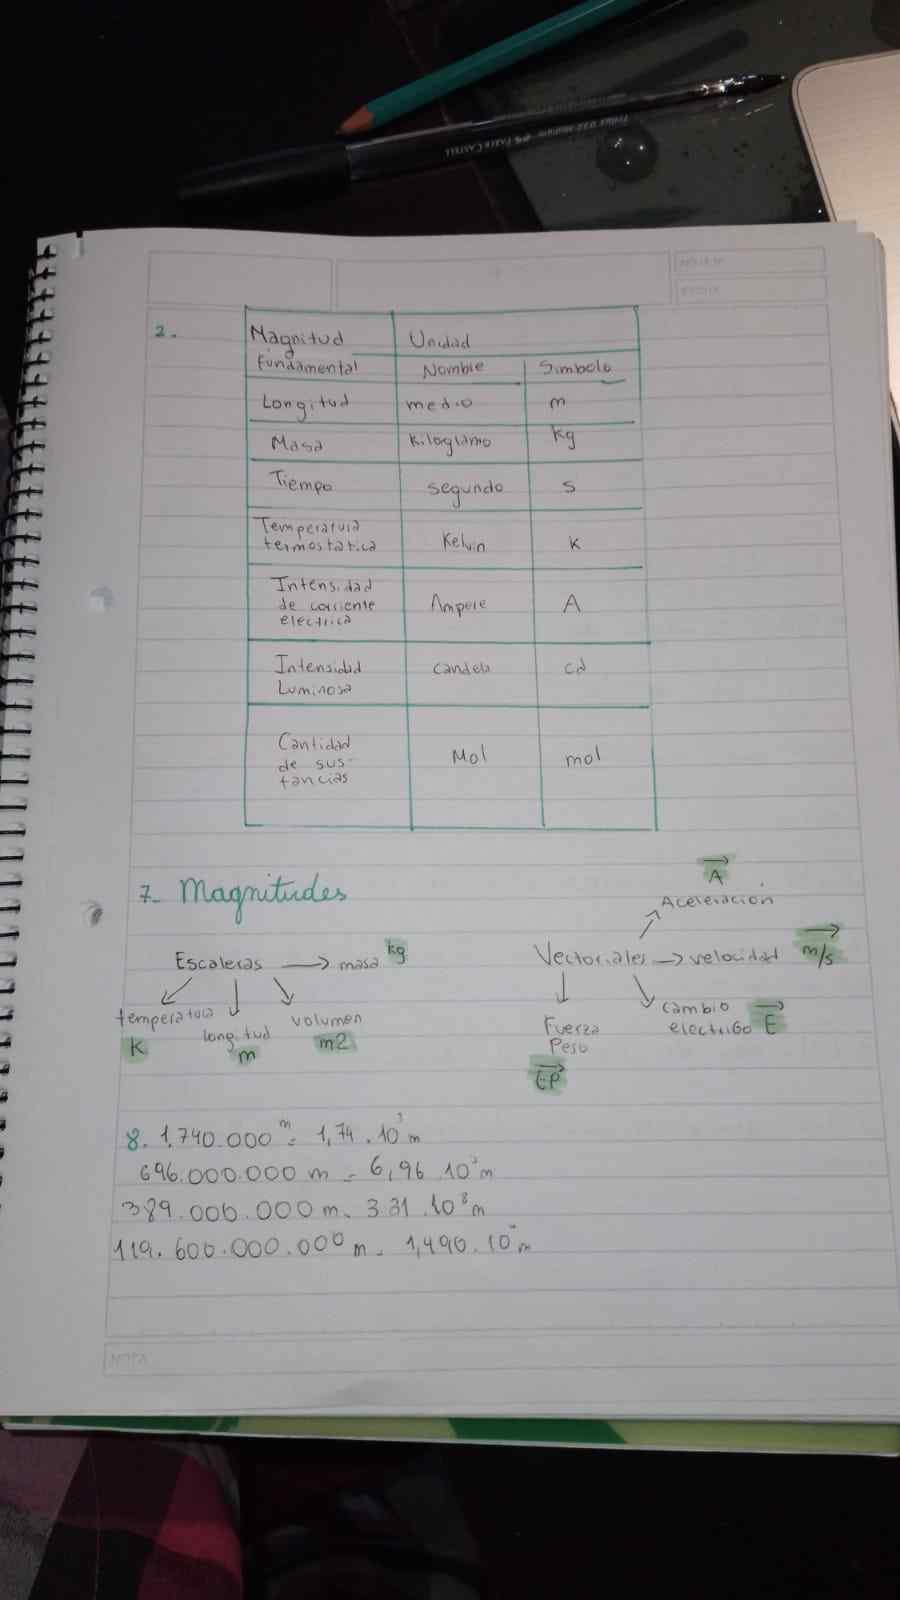 FABER CASTELL
2.
Magnitud Fundamental Unidad
Nombre Simbolo
Longitud medio m
Masa Kilogramo kg
Tiempo segundo s
Temperatura
termostatica Kelvin K
Intensidad
de corriente
electrica Ampere A
Intensidad
Luminosa candela cd
Cantidad
de sus-
tancias Mol mol
7- Magnitudes
Escaleras → masa kg
temperatura
K
longitud
m
volumen
m2
Vectoriales → velocidad m/s
A
Aceleracion
Fuerza
Peso
cambio
electrico E
8. 1,740.000 m = 1,74 . 10 m
696.000.000 m = 6,96 . 10 m
389.000.000 m. 10⁸ m
119.600.000.000 m = 1,490 . 10 m
NOTA